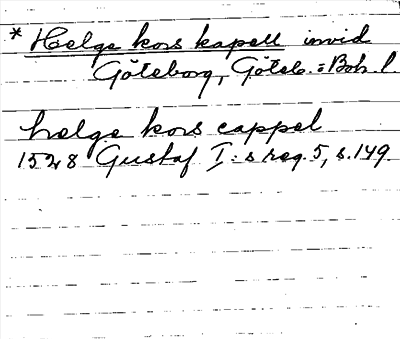 * Helge kors kapell invid
Göteborg, Göteb. o Boh. l.
helge kors cappel
1528 Gustaf I:s reg. 5, s. 149.